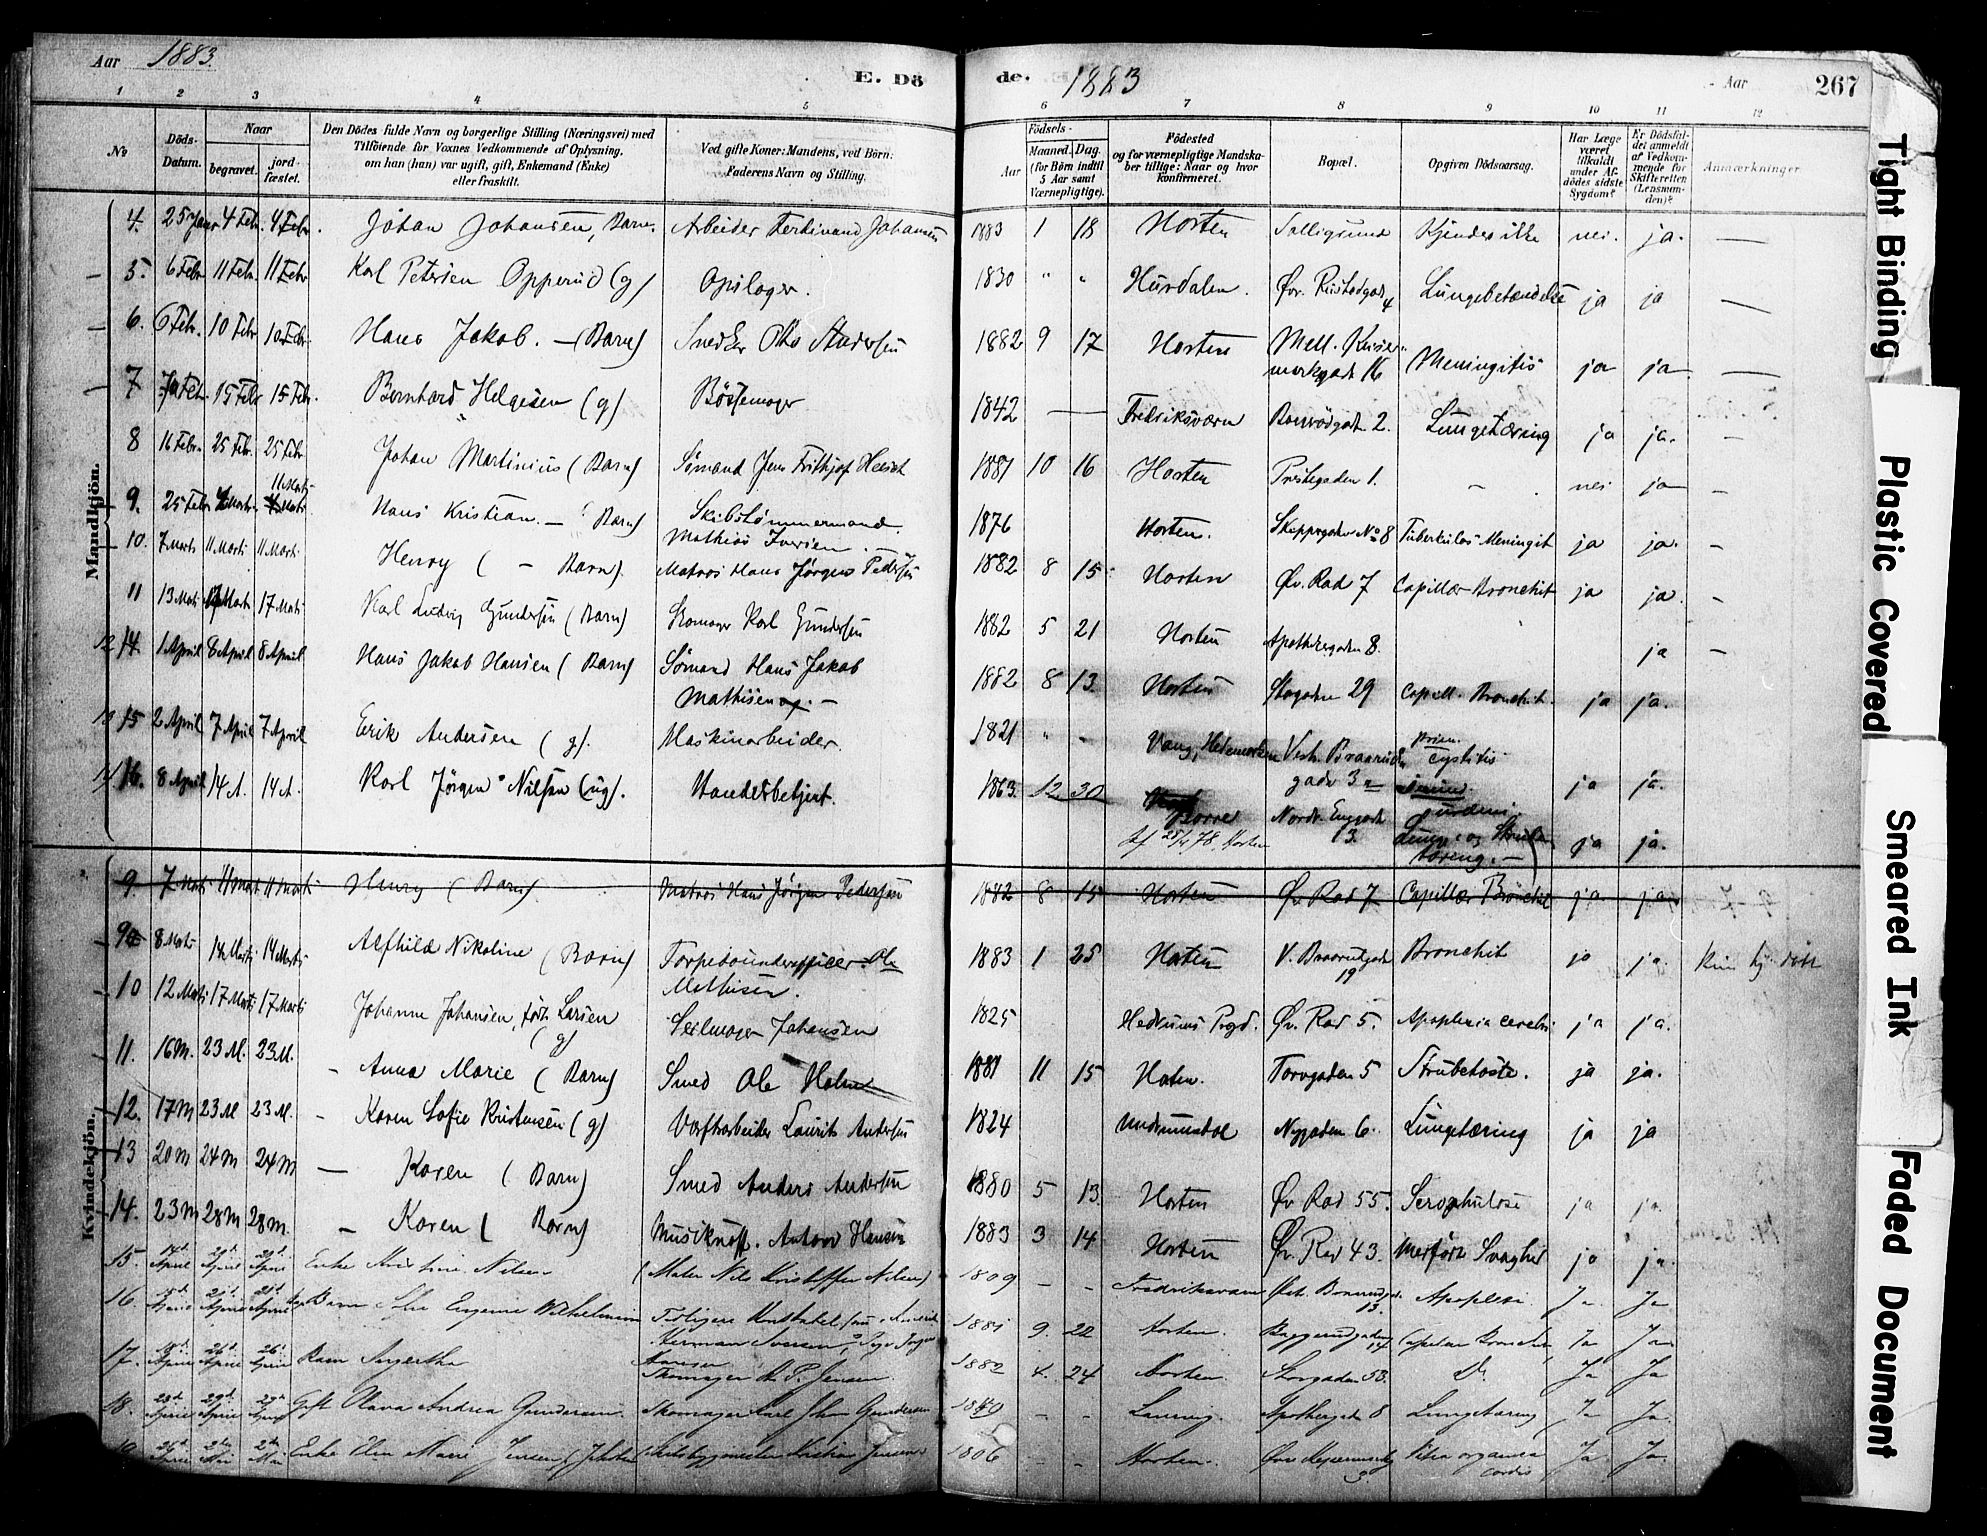 Aar 1883.
E. Dö
de.
1883
Aar
267
1 2 3 4 5 6 7 8 9 10 11 12
№
Döds-Datum.
Naar
begravet.
jordfæstet.
Den Dödes fulde Navn og borgerlige Stilling (Næringsvei) med
Tilföiende for Voxnes Vedkommende af Oplysning,
om han (hun) var ugift, gift, Enkemand (Enke)
eller fraskilt.
Ved gifte Koner: Mandens, ved Börn:
Faderens Navn og Stilling.
Födsels-
Aar
Maaned. Dag.
(for Börn indtil
5 Aar samt
Værnepligtige).
Födested
og for værnepligtige Mandska-
ber tillige: Naar og hvor
konfirmeret.
Bopæl.
Opgiven Dödsaarsag.
Har Læge
været
tilkaldt
under Af-
dödes sidste
Sygdom?
Er Dödsfal-
det anmeldt
af Vedkom-
mende for
Skifteretten
(Lensman-
den)?
Anmærkninger
Mandkjön.
4. 25 Janr 4 Febr. 4 Febr. Johan Johansen, Barn. Arbeider Ferdinand Johansen 1883 1 18 Horten Kjendes ikke nei. ja. —
5. 6 Febr 11 Febr. 11 Febr Karl Petersen Opperud (g) Opslager. 1830 " " Hurdalen. Øvr. 4 Lungebetændelse ja ja —
6. 6 Febr. 10 Febr 10 Febr. Hans Jakob. — (Barn) Snedker Otto Andersen 1882 9 17 Horten Mell. 16 Meningitis ja ja —
7 15 Febr 15 Febr. Bernhard Helgesen (g) Bössemager 1842 — Fredriksværn 2. Lungetæring ja ja. —
8 16 Febr. 25 Febr. 25 Febr Johan Martinius (Barn) Sömand Jens Frithjof 1881 10 16 Horten 1. - nei ja —
9. 25 Febr 11 Marts Hans Kristian. — (Barn) Skibstömmermand Mathias Iversen 1876 Horten. Skippergaden No 8 Tuberkulos Meningit ja ja. —
10. 7 Marts 11 Marts 11 Marts Henry ( — Barn). Matros Hans Jörgen Pedersen 1882 8 15 Horten Øv. Rad 7 Capillær Bronchit ja ja. —
11 13 Marts 17 Marts Karl Ludvig Gundersen (Barn) Skomager Karl Gundersen 1882 5 21 Horten Apothekergaden 8. ja —
12 14. 1 April 8 April 8 April Hans Jakob Hansen (Barn) Sömand Hans Jakob Mathisen 1882 8 13. Horten Stogaden 29 Capill. Bronchit. ja ja.
13 15 2 April 7 April 7 April Erik Andersen (g). Maskinarbeider. 1821 " - Vang, Hedemarken Vestr. Braarudgade 3 Cystitis ja ja.
14 16. 8 April 14 A. 14 A. Karl Jörgen Nilsen (ug). Handelsbetjent. 1863. 12 30 Borre 78, Horten Nordr. Enggade 13. Lunge- og Strubetæring. — ja ja.
Kvindekjön.
9. 7 Marts 11 Marts 11 Marts Henry (Barn) Matros Hans Jörgen Pedersen 1882 8 15 Horten Øv Rad 7 Capillær Bronchit ja ja
9a 8 Marts 14 Marts 14 Marts Alfhild Nikoline (Barn) Torpedounderofficer Ole Mathisen. 1883 1 25 Horten V. Braarudgade 19 Bronchit ja ja. Kun hj. döbt
10 12 Marts 17 Marts 17 Marts Johanne Johansen, födt Larsen (g) Seilmager Johansen 1825 Hedrums Prgd. Øv. Rad 5. Apoplexia cerebri ja ja.
11. 16 M. 23 M. 23 M. - Anna Marie (Barn) Smed Ole Holm 1881 11 15 Horten. Torvgaden 5 Strubehoste. ja ja.
12. 17 M 23 M 23 M. - Karen Sofie Kristensen (g) Værftsarbeider Laurits Andersen 1824 Nygaden 6. Lungetæring ja ja
13 20 M 24 M 24 M — Karen (Barn) Smed Anders Andersen 1880 5 13. Horten Øv Rad 55. Scrophulose ja ja.
14. 23 M 28 M 28 M. — Karen ( Barn) Musiknoff. Anton Hansen 1883 3 14 Horten Øv. Rad 43. Medfödt Svaghed ja ja.
15. April April April Enke Kristine Nilsen (Mater Nils Kristoffer Nilsen) 1809 - - Fredriksværn Øst. Braarudgd. 13. Apoplexi. Ja Ja
16 April April April Barn Eugenie Wilhelmine Tidligere Konstabel Herman Hansen 1881 9. 22 Horten. 14 Capillær Bronchit Ja Ja
17. April April April Barn Skomager A. P. Jensen. 1882 4. 24 Horten. Storgaden 53. Do Ja Ja
18. April April April Gift Olava Andrea Gundersen. Skomager Karl Gundersen 1849 - - Laurvig. Apothergade 8 Lungetæring Ja Ja.
19. April Mai Mai Enke Marie Jensen Skibsbygmester Kristian Jensen 1806 - - Horten. 3. Vitia organica cordis Ja Ja
Tight Binding
Plastic Covered
Smeared Ink
Faded Document